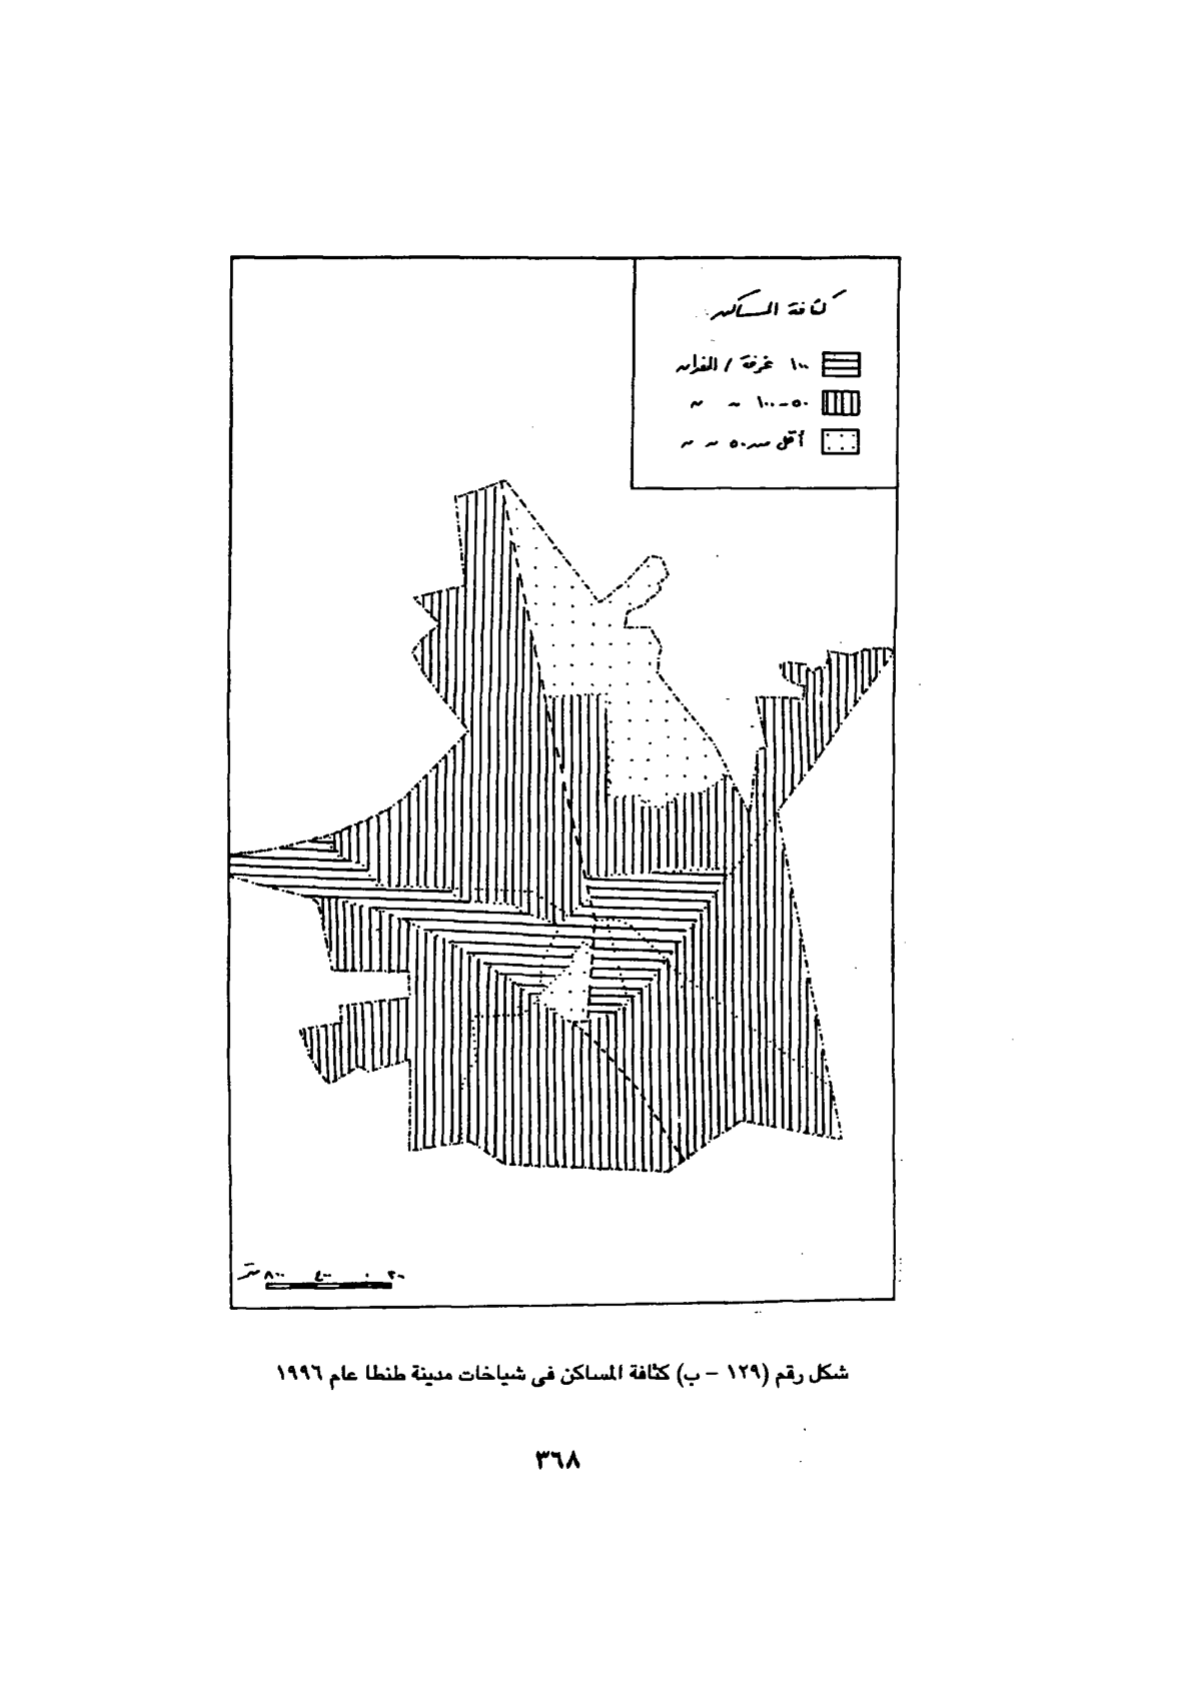 كثافة المساكن
١٠٠ غرفة / للفدان
٥٠-١٠٠ 〃 〃
أقل من ٥٠ 〃 〃
٨٠٠ ٤٠٠ ٠ ٢٠٠ متر
شكل رقم (١٢٩ - ب) كثافة المساكن فى شياخات مدينة طنطا عام ١٩٩٦
٣٦٨